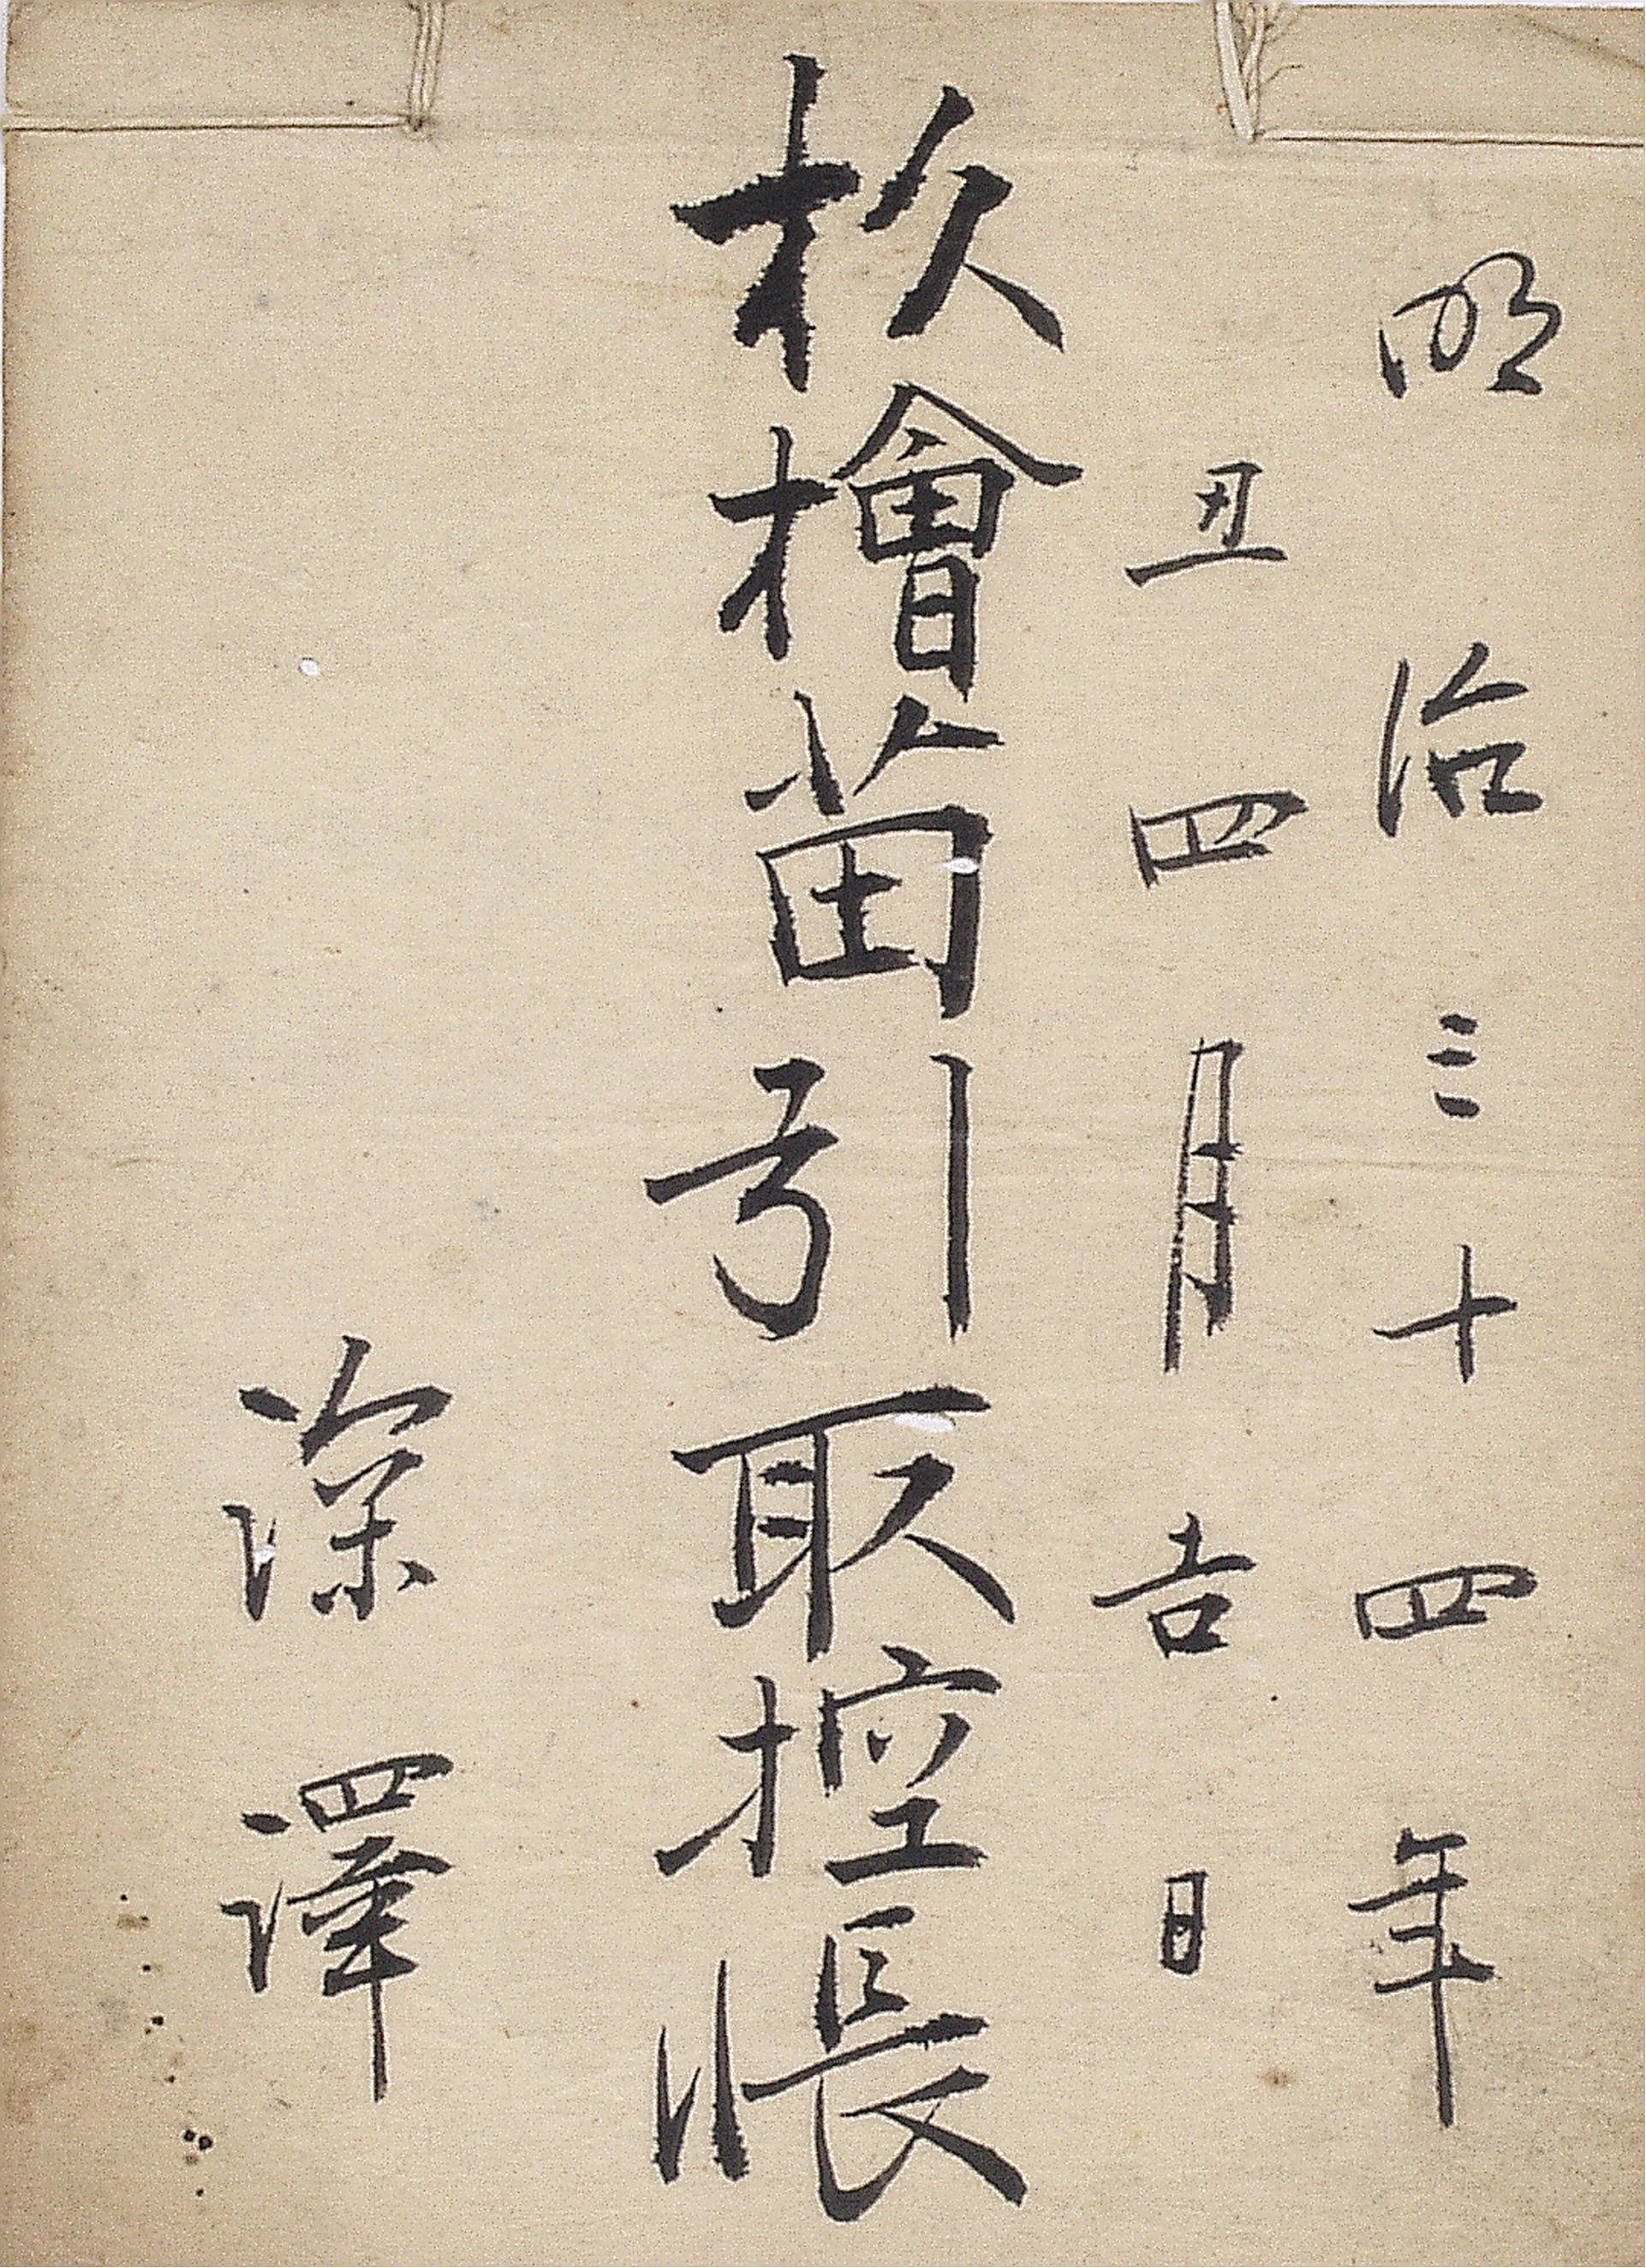 明治三十四年
丑四月吉日
杦檜苗引取控帳
深澤